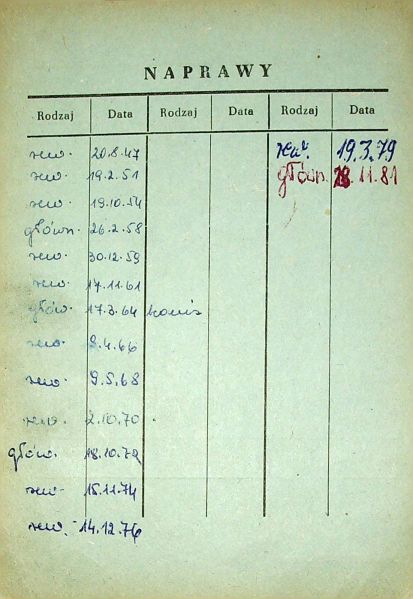 NAPRAWY
Rodzaj Data Rodzaj Data Rodzaj Data
rew. 20.8.47 rew. 19.3.79
rew. 19.2.51 główn. 28.11.81
rew. 19.10.54
główn. 26.2.58
rew. 30.12.59
rew. 17.11.61
głów. 17.3.64
rew. 2.4.66
rew. 9.5.68
rew. 2.10.70
głów. 18.10.72
rew. 15.11.74
rew. 14.12.76